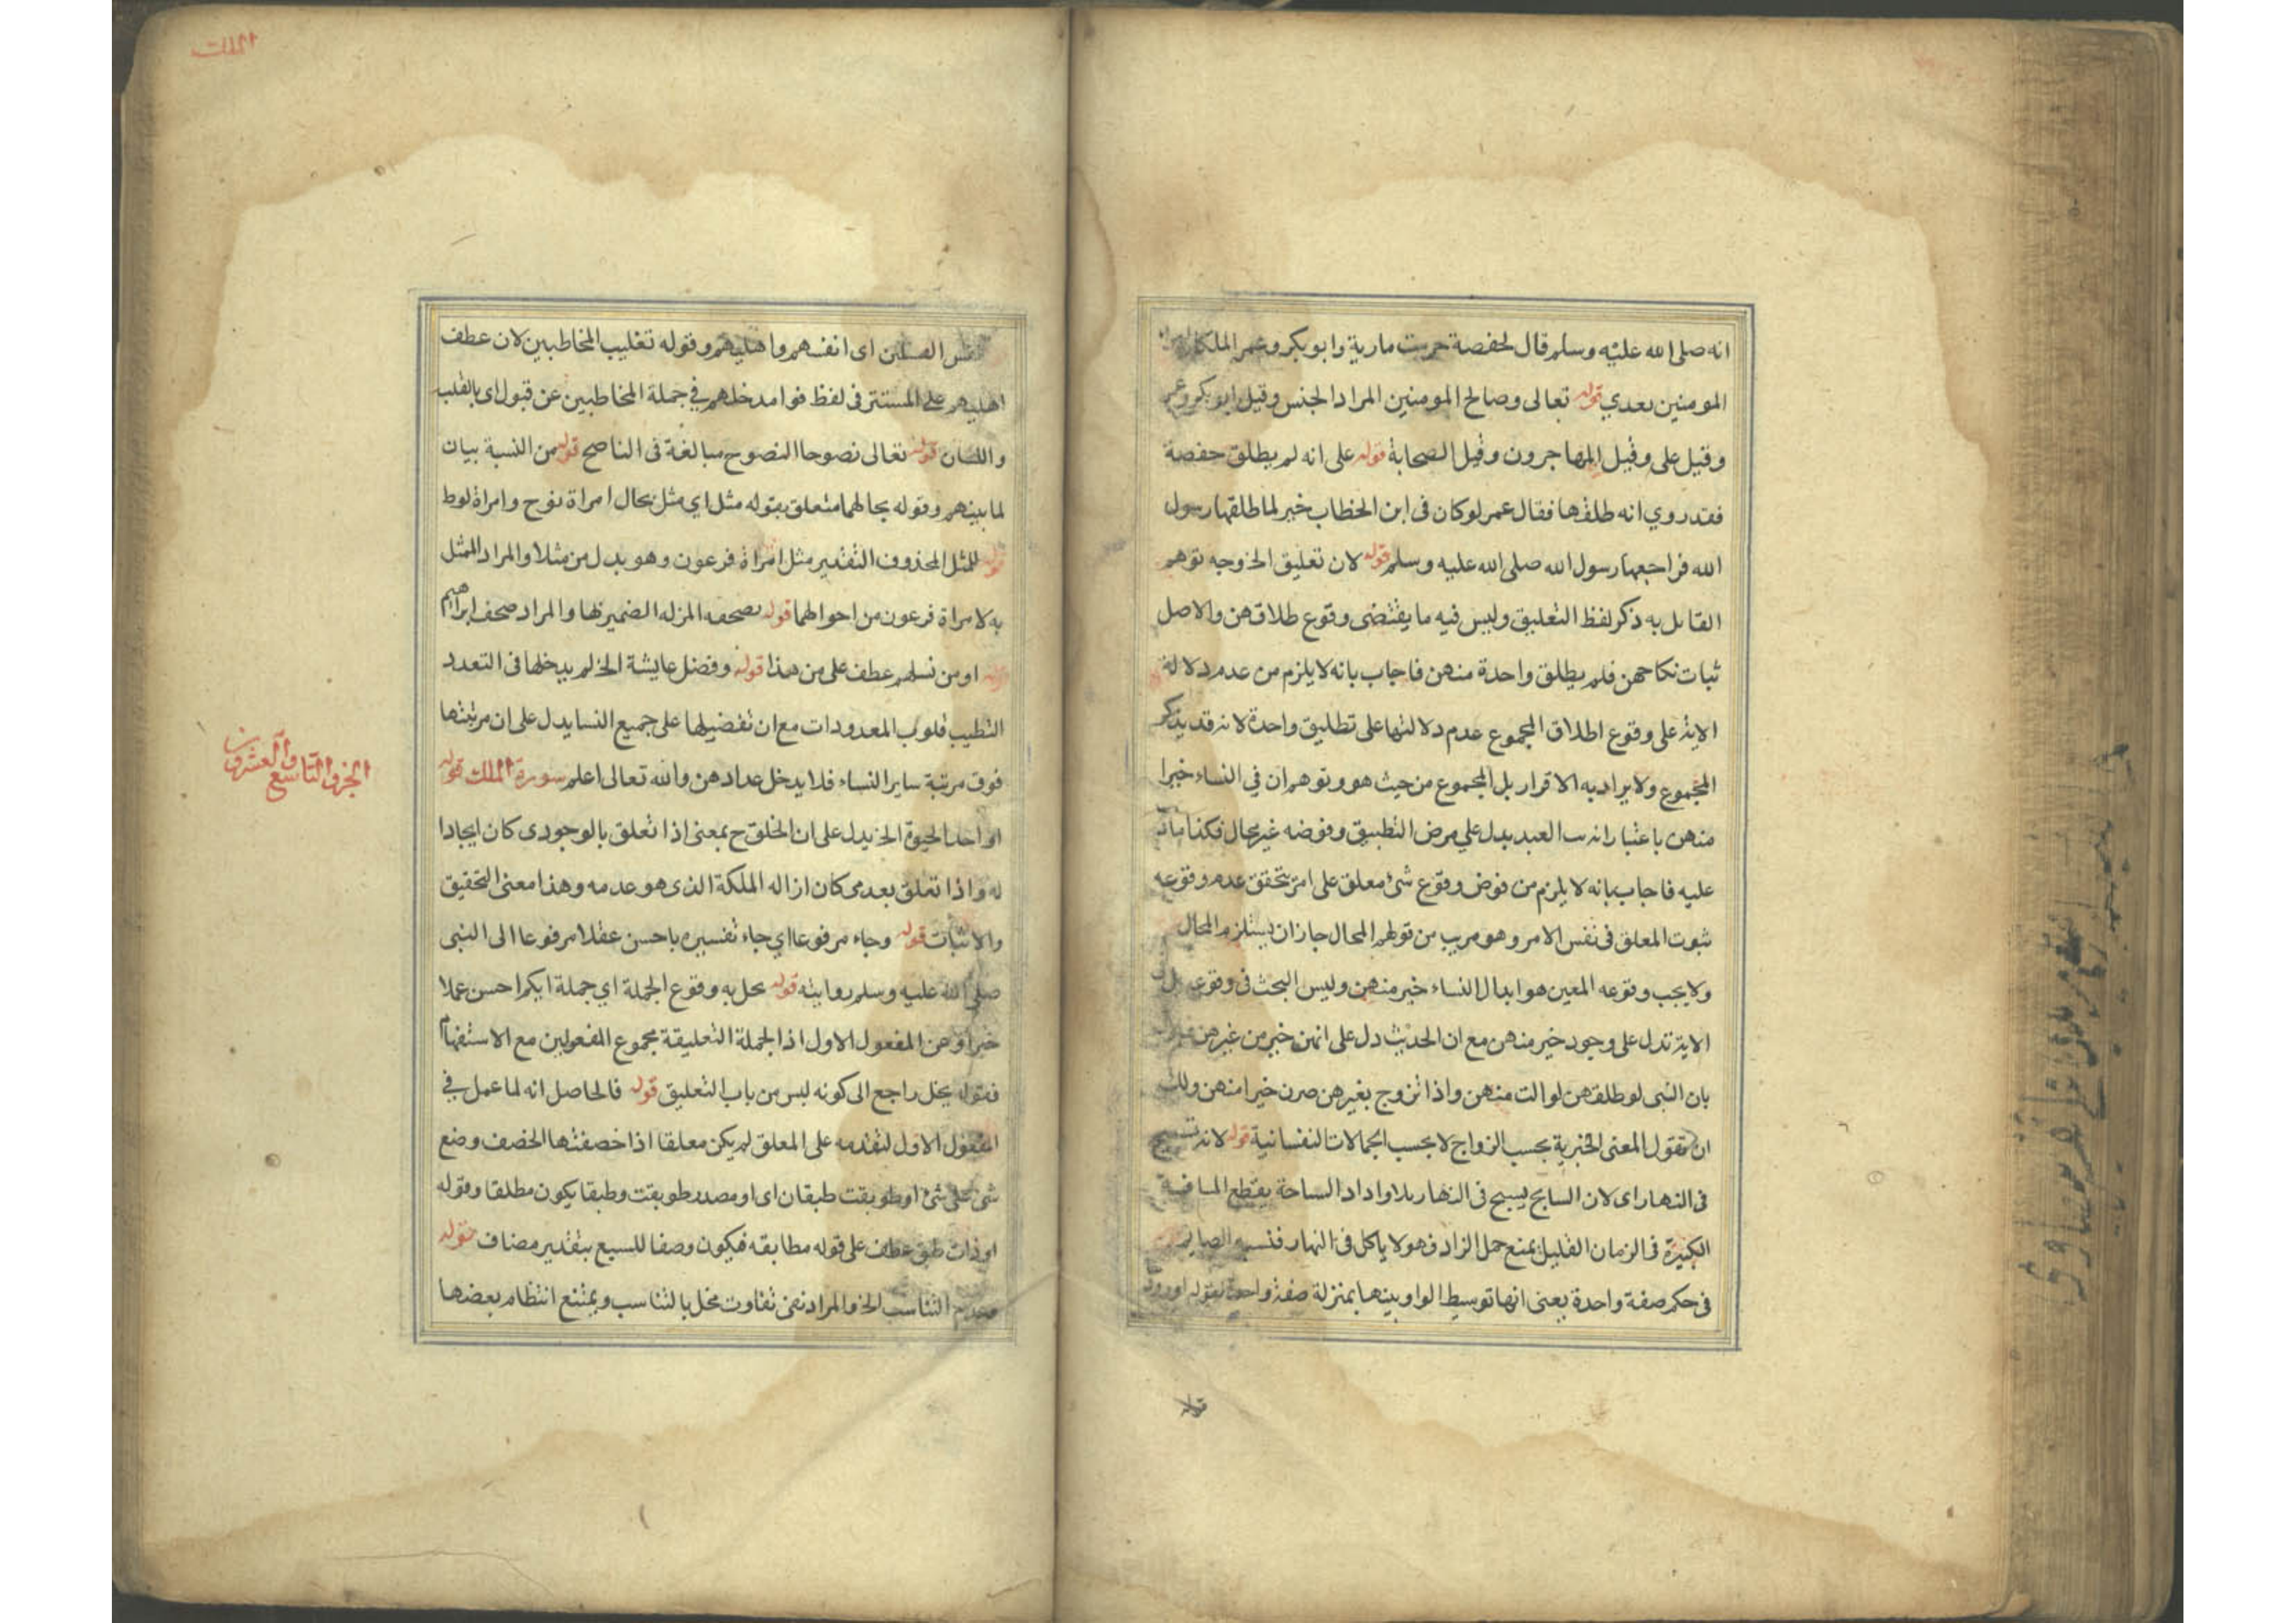 انه صلى الله عليه وسلم قال لحفصة حرمت مارية وابو بكر وعمر الملكان
المومنين بعدي قوله تعالى وصالح المومنين المراد الجنس وقيل ابو بكر وعمر
وقيل على وقيل المهاجرون وقيل الصحابة قوله على انه لم يطلق حفصة
فقد روي انه طلقها فقال عمر لو كان فى ابن الخطاب خير لما طلقها رسول
الله فراجعها رسول الله صلى الله عليه وسلم قوله لان تعليق الخ وجه توهم
القايل به ذكر لفظ التعليق وليس فيه ما يقتضى وقوع طلاقهن والاصل
ثبات نكاحهن فلم يطلق واحدة منهن فاجاب بانه لا يلزم من عدم دلالة
الاية على وقوع اطلاق المجموع عدم دلالتها على تطليق واحدة لانه قد يذكر
المجموع ولا يراد به الاقرار بل المجموع من حيث هو وتوهم ان في النساء خيرا
منهن باعتبار انه العبد يدل علي مرض التطبيق وفوضه غير محال فكذا
عليه فاجاب بانه لا يلزم من فوض وقوع شئ معلق على امر تحقق عدم وقوعه
ثبوت المعلق فى نفس الامر وهو مريب من قولهم المحال جاز ان يستلزم المحال
ولا يجب وقوعه المعين هو ابدال النساء خير منهن وليس البحث فى وقوعه بل
الاية تدل على وجود خير منهن مع ان الحديث دل على انهن خير من غيرهن
بان النبى لو طلقهن لوالت منهن واذا تزوج بغيرهن صرن خيرا منهن ولك
ان تقول المعنى الخيرية بحسب الزواج لا بحسب الجمالات النفسانية قوله لانه تسبيح
فى النهار اى لان السابح يسبح فى النهار بلا واداد الساحة يقطع المسافة
الكبيرة فى الزمان القليل يمنع حمل الزاد فهو لا ياكل فى النهار فنسبه الصايم
فى حكم صفة واحدة يعنى انها توسيط الواو بينهما بمنزلة صفة واحدة لقوله او ورود
قوله
الملك
المسلمين اى انفسهم واهليهم وقوله تغليب المخاطبين لان عطف
اهليهم على المستتر فى لفظ قوا مدخلهم في جملة المخاطبين عن قبول اى بالقلب
واللسان قوله تعالى نصوحا النصوح مبالغة فى الناصح قوله من النسبة بيان
لما بينهم وقوله بحالهما متعلق بقوله مثل اي مثل بحال امراة نوح وامراة لوط
قوله للمثل المحذوف التقدير مثل امراة فرعون وهو بدل من مثلا والمراد الممثل
به لامراة فرعون من احوالهما قوله بصحفه المنزله الضمير لها والمراد صحف ابراهيم
قوله او من نسلهم عطف على من هذا قوله وفضل عايشة الخ لم يدخلها فى التعدد
التطيب قلوب المعدودات مع ان تفضيلها على جميع النسا يدل على ان مرتبتها
فوق مرتبة ساير النساء فلا يدخل عدادهن والله تعالى اعلم سورة الملك قوله
او احد الحيوة الخ يدل على ان الخلق ح بمعنى اذا تعلق بالوجودى كان ايجادا
له واذا تعلق بعدمى كان ازاله الملكة الذى هو عدمه وهذا معنى التحقيق
والاثبات قوله وجاء مرفوعا اي جاء تفسيره باحسن عقلا مرفوعا الى النبى
صلى الله عليه وسلم روايته قوله محل به وقوع الجملة اي جملة ايكم احسن عملا
خبرا وعن المفعول الاول اذ الجملة التعليقة مجموع المفعولين مع الاستفهام
فقوله يخل راجع الى كونه ليس من باب التعليق قوله فالحاصل انه لما عمل في
المفعول الاول لتقدمه على المعلق لم يكن معلقا اذا خصفتها الخصف وضع
شئ على شئ او طوبقت طبقان اى او مصدر طوبقت وطبقا يكون مطلقا وقوله
او ذات طبق عطف على قوله مطابقه فيكون وصفا للسبع بتقدير مضاف قوله
وعدم التناسب الخ والمراد نفى تفاوت مخل بالتناسب ويمتنع انتظام بعضها
الجزو التاسع والعشرون